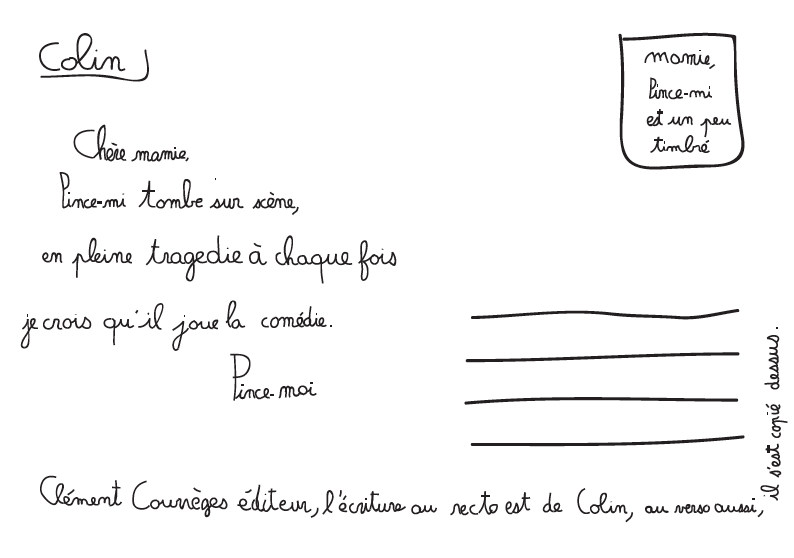 Colin
mamie,
Pince-mi
est un peu
timbré
Chère mamie,
Pince-mi tombe sur scène,
en pleine tragedie à chaque fois
je crois qu'il joue la comédie.
Pince-moi
Clément Counèges éditeur, l'écriture au recto est de Colin, au verso aussi,
il s'est copié dessus.